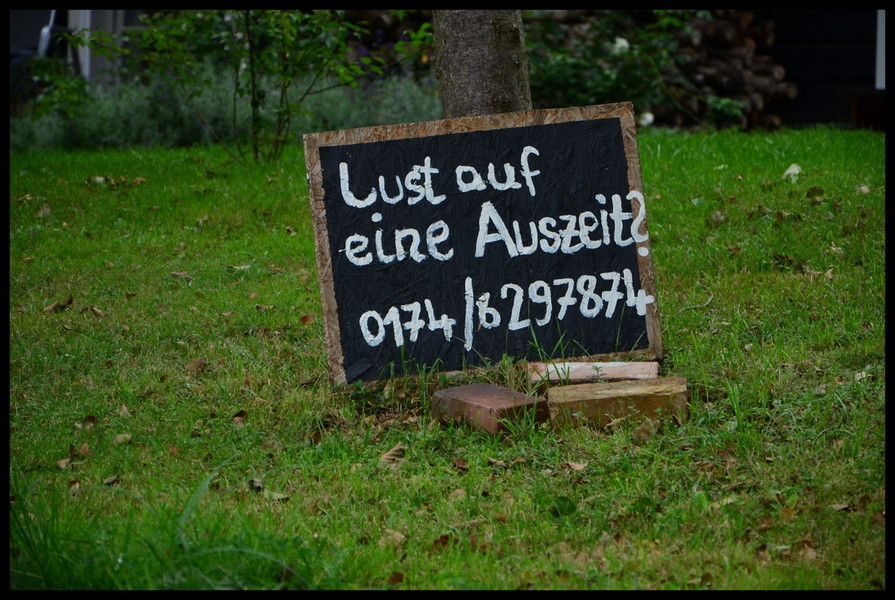 Lust auf
eine Auszeit?
0174/6297874